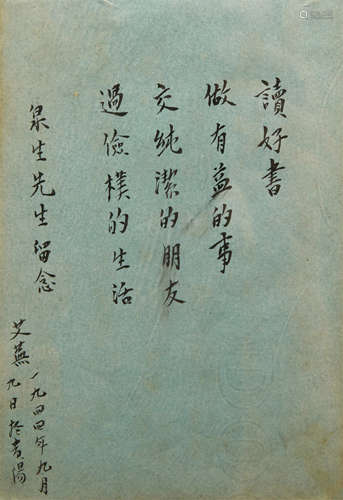 讀好書
做有益的事
交純潔的朋友
過儉樸的生活
泉生先生留念
艾蕪
一九四四年九月
九日於貴陽